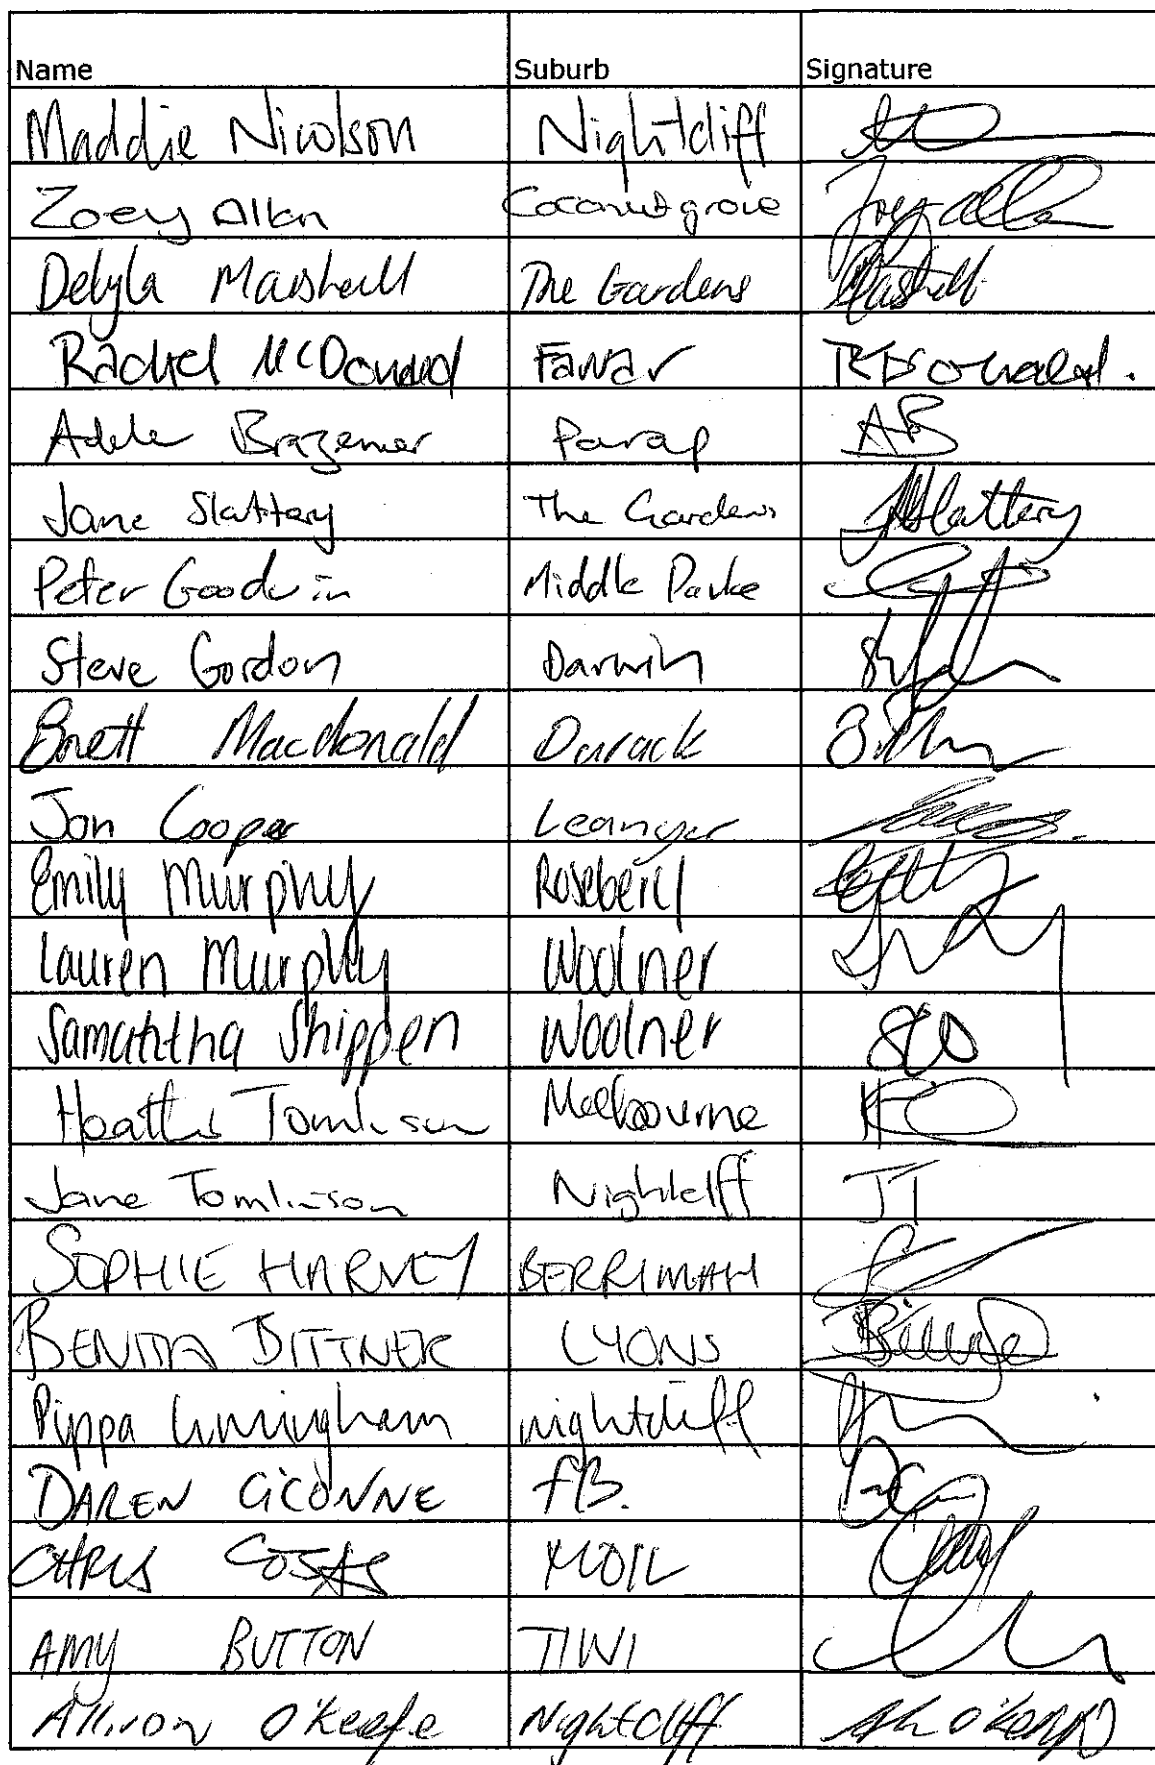 Name Suburb Signature
Maddie Nicolson Nightcliff
Zoey Allan Coconutgrove Zoey Alla
Delyla Marshall The Gardens Marshall
Rachel McDonald Fannar RDonald.
Adele Brazener Parap AB
Jane Slattery The Gardens JSlattery
Peter Goodwin Middle Parke
Steve Gordon Darwin
Brett Macdonald Durack
Jon Cooper Leanyer
Emily Murphy Rosebery
Lauren Murphy Woolner
Samantha Shippen Woolner
Heather Tomlinson Melbourne
Jane Tomlinson Nightcliff JT
SOPHIE HARVEY BERRIMAH
BENITA BITTNER LYONS
Pippa Cunningham nightcliff
DAREN CICONNE FB.
CHRIS COSTA MOIL
AMY BUTTON TIWI
Allison O'Keefe Nightcliff